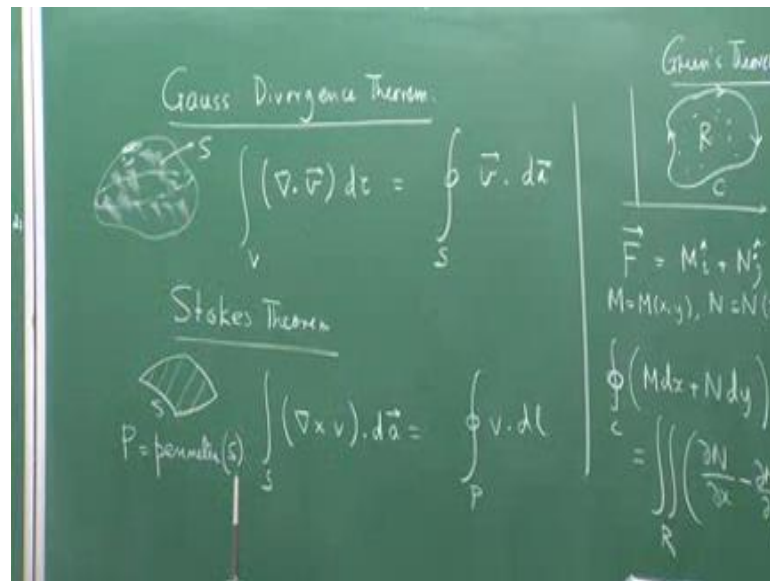 Gauss Divergence Theorem.
S
∫_V (∇·v⃗) dτ = ∮_S v⃗ · da⃗
Stokes Theorem
S
P = perimeter(S)
∫_S (∇ × v) · da⃗ = ∮_P v · dl
Green's Theore
R
C
F⃗ = Mî + Nĵ
M = M(x,y), N = N(
∮_C (Mdx + Ndy)
= ∬_R (∂N/∂x - ∂